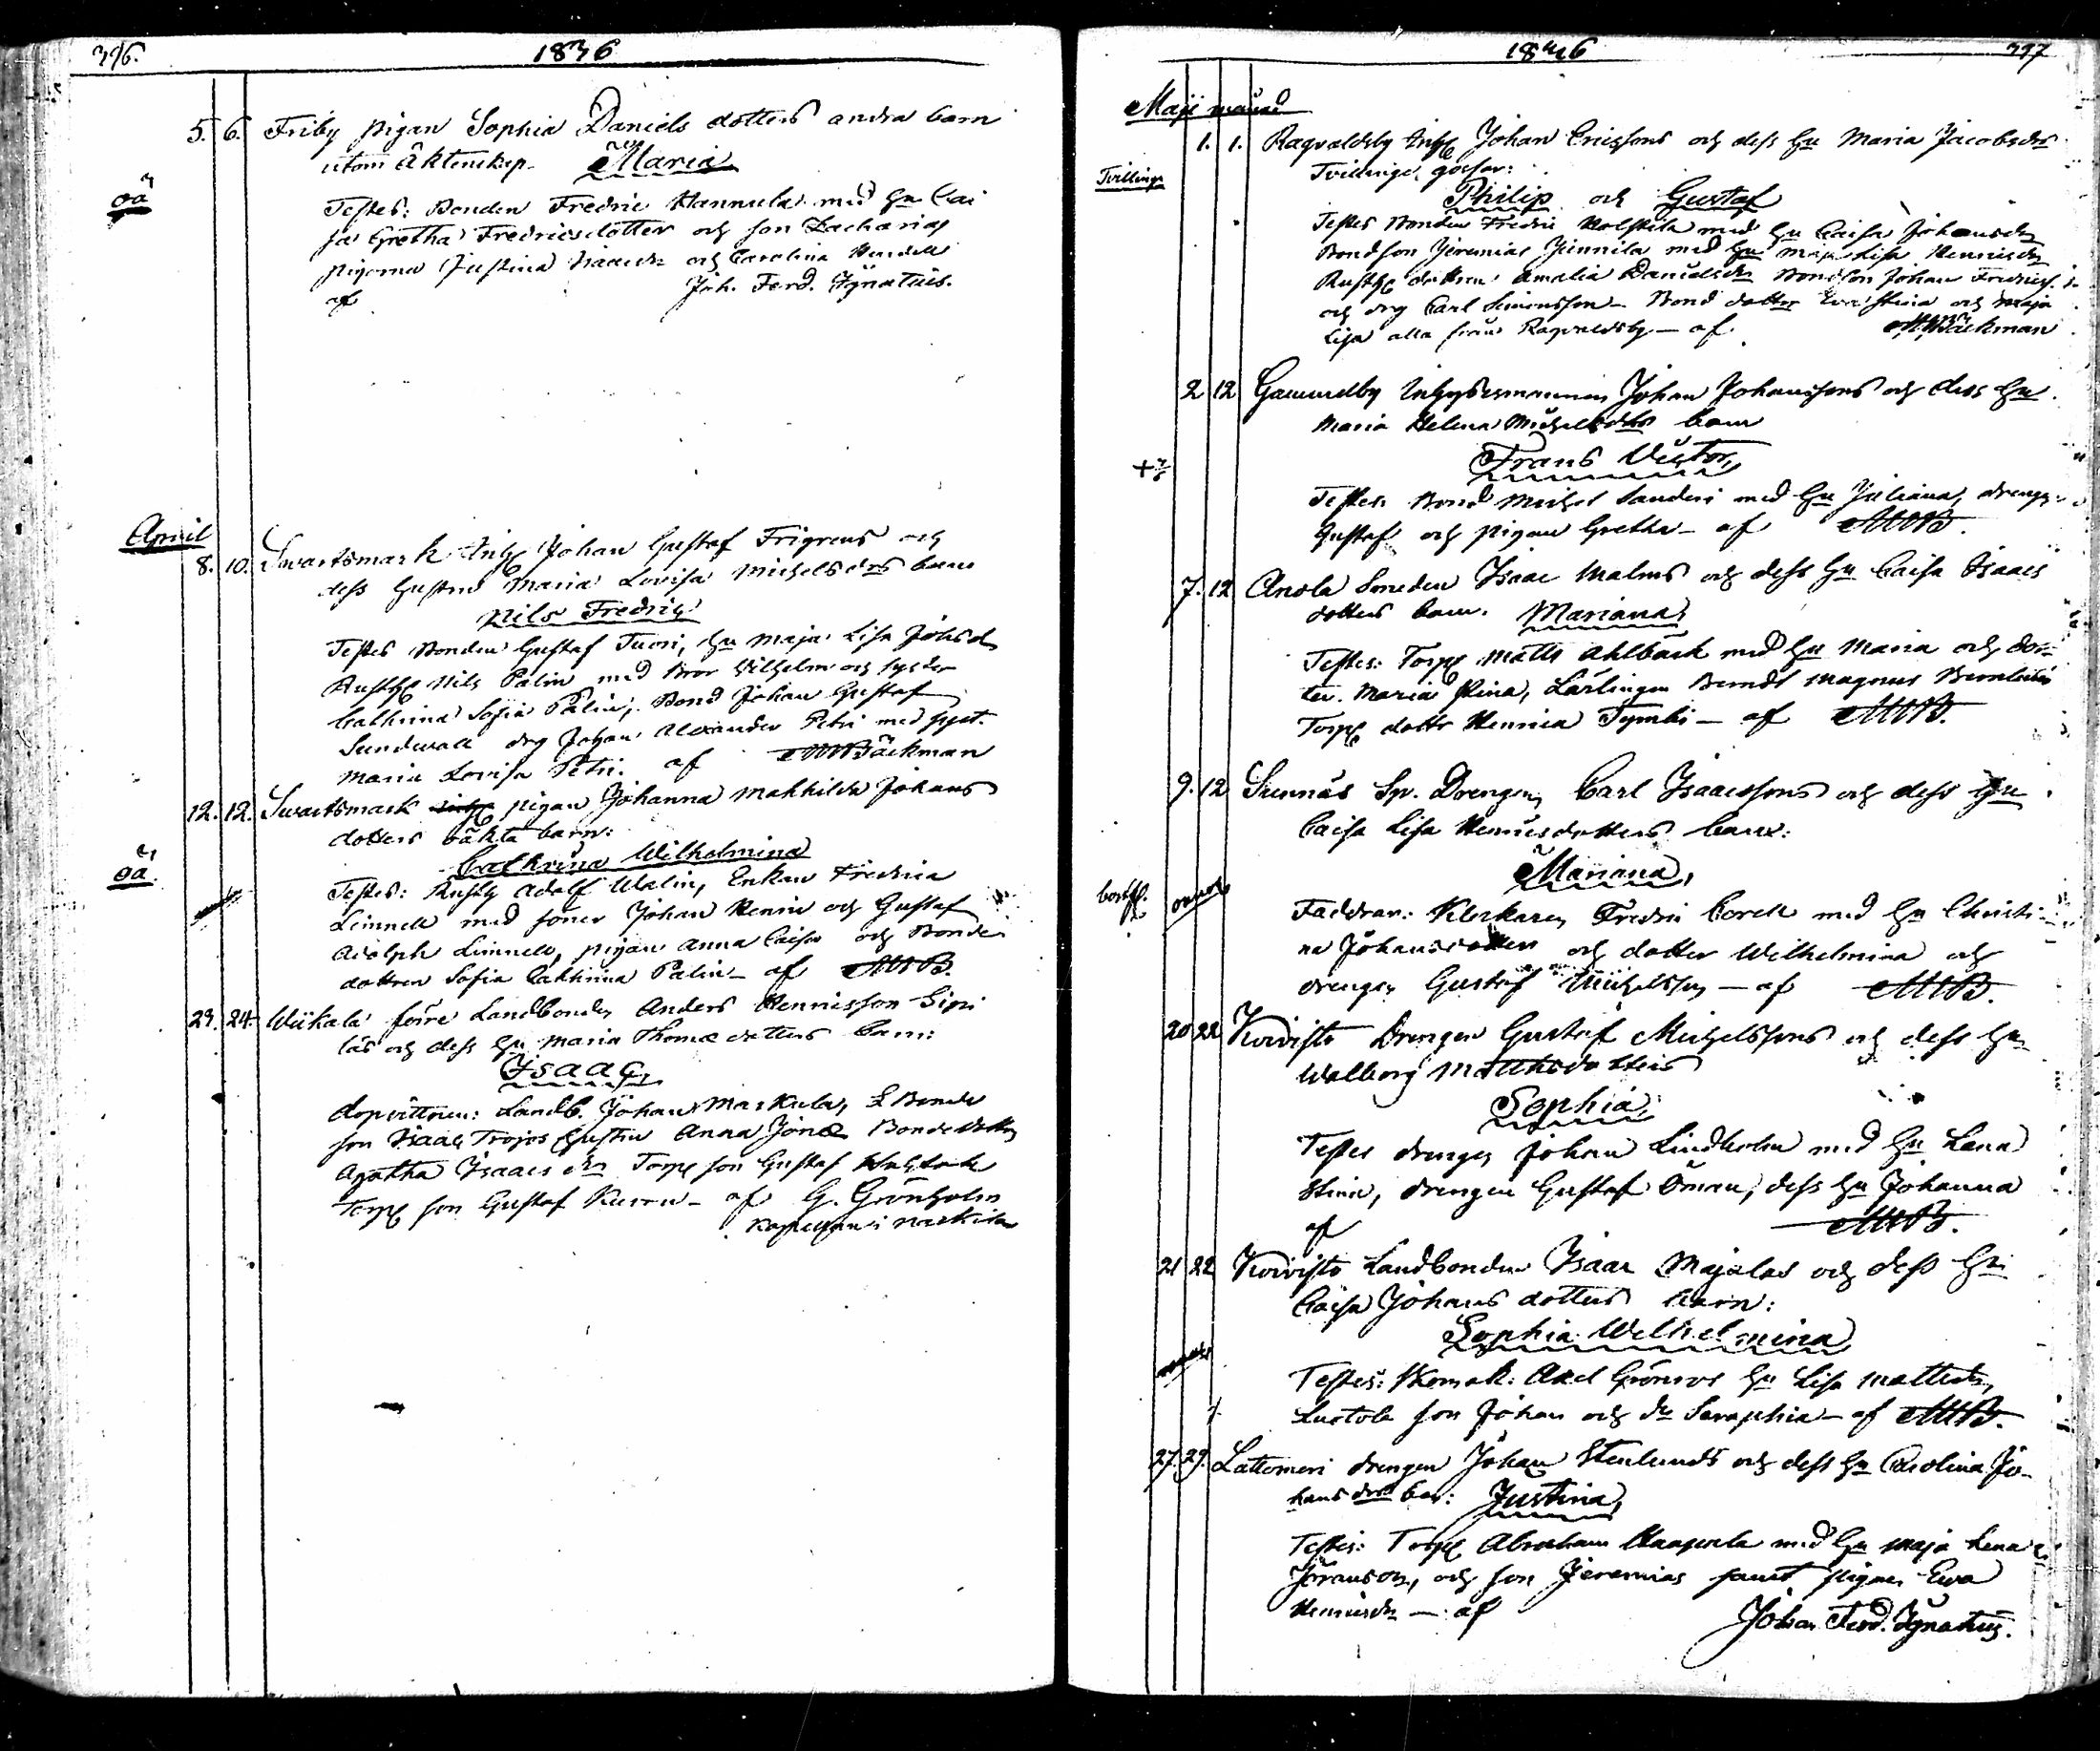 396.
1836
5. 6. Friby pigan Sophia Daniels dotters andra barn
utom äktenskap. Maria
oä
Testes: Bonden Fredric Hannula med Hu Cai
sa Gretha Fredricsdotter och son Zacharias
pigorna Justina Isaacsdr och Carolina Hendell
af Joh. Ferd. Ignatius.
April
8. 10. Swartsmark Inh Johan Gustaf Frigrens och
dess hustru Maria Lovisa Michelsdrs barn
Nils Fredric
Testes Bonden Gustaf Tuori, Hu Maja Lisa Johsdr
Rusth Nils Palin med bror Wilhelm och syster
Cathrina Sofia Palin, Bond Johan Gustaf
Sundwall drg Johan Alexander Petri med syst.
Maria Lovisa Petri. af MWBäckman
12. 12. Swartsmark pigan Johanna Mathilda Johans
dotters oäkta barn:
Cathrina Wilhelmina
oä.
Testes: Rusth Adolf Walin, Enkan Fredrica
Limnell med söner Johan Henric och Gustaf
Adolph Limnell, pigan Anna Caisa och Bonde
dottren Sofia Cathrina Palin – af MWB.
23. 24. Wiikala förre Landbonden Anders Henricsson Sipi
läs och dess Hu Maria Thomædotters barn:
Isaac
dopvittnen: Landb. Johan Markula, L Bonde
son Isaac Trojos hustru Anna Jonæ Bondedottr
Agatha Isaacsdr Torp son Gustaf
Torp son Gustaf Kurru – af G. Grönholm
Kapellan i Nackila
1836
397
Maji månad
1. 1. Ragvaldsby Inh Johan Ericssons och dess Hu Maria Jacobsdrs
Tvillinge gossar:
Tvillingr
Philip och Gustaf
Testes Bonden Fredric Holstila med Hu Caisa Johansdr
Bondson Jeremias Jinnila med Hu Maja Lisa Henricsdr
Rusth dottren Amalia Danielsdr Bondson Johan Fredrics.
och drg Carl Simonsson – Bond dotter Eva Stina och Maja
Lisa alla från Ragvaldsby – af MWBäckman
2 12 Gammelby Inhysesmannen Johan Johanssons och dess Hu
Maria Helena Michelsdtrs barn
Frans Victor
Testes: Bond Michel Sanderi med Hu Juliana, dreng
Gustaf och pigan Gretha – af MWB.
7. 12 Anola Smeden Isaac Malms och dess Hu Caisa Isaacs
dotters barn. Mariana
Testes: Torp Matts Ahlbäck med Hu Maria och dot
ter. Maria Stina, Lärlingen Berndt Magnus
Torp dottr Henrica Tymki – af MWB.
9. 12 Sunnäs Sp. Drengen Carl Isaacssons och dess Hu
Caisa Lisa Henricsdotters barn:
Mariana
Faddrar: Klockaren Fredric Corell med Hu Christi
na Johansdotter och dotter Wilhelmina och
drengen Gustaf Michelsson – af MWB.
20 22 Koivisto Drengen Gustaf Michelssons och dess Hu
Walborg Matthsdotters
Sophia
Testes drengen Johan Lindholm med Hu Lena
Stina, drengen Gustaf Öman, dess Hu Johanna
af MWB.
21 22 Koivisto Landbonden Isaac Majalas och dess Hu
Caisa Johans dotters barn:
Sophia Wilhelmina
Testes: Skomak: Axel Grönroos Hu Lisa Mattsdr,
Luotola son Johan och dr Seraphia – af MWB.
27. 29. Lattomeri drengen Johan Stenlunds och dess Hu Carolina Jo-
hans drs bar: Justina
Testes: Torp Abraham Haapala med Hu Maja Lena
Jöransdr, och son Jeremias samt pigan Eva
Henricsdr – af Johan Ferd. Ignatius.